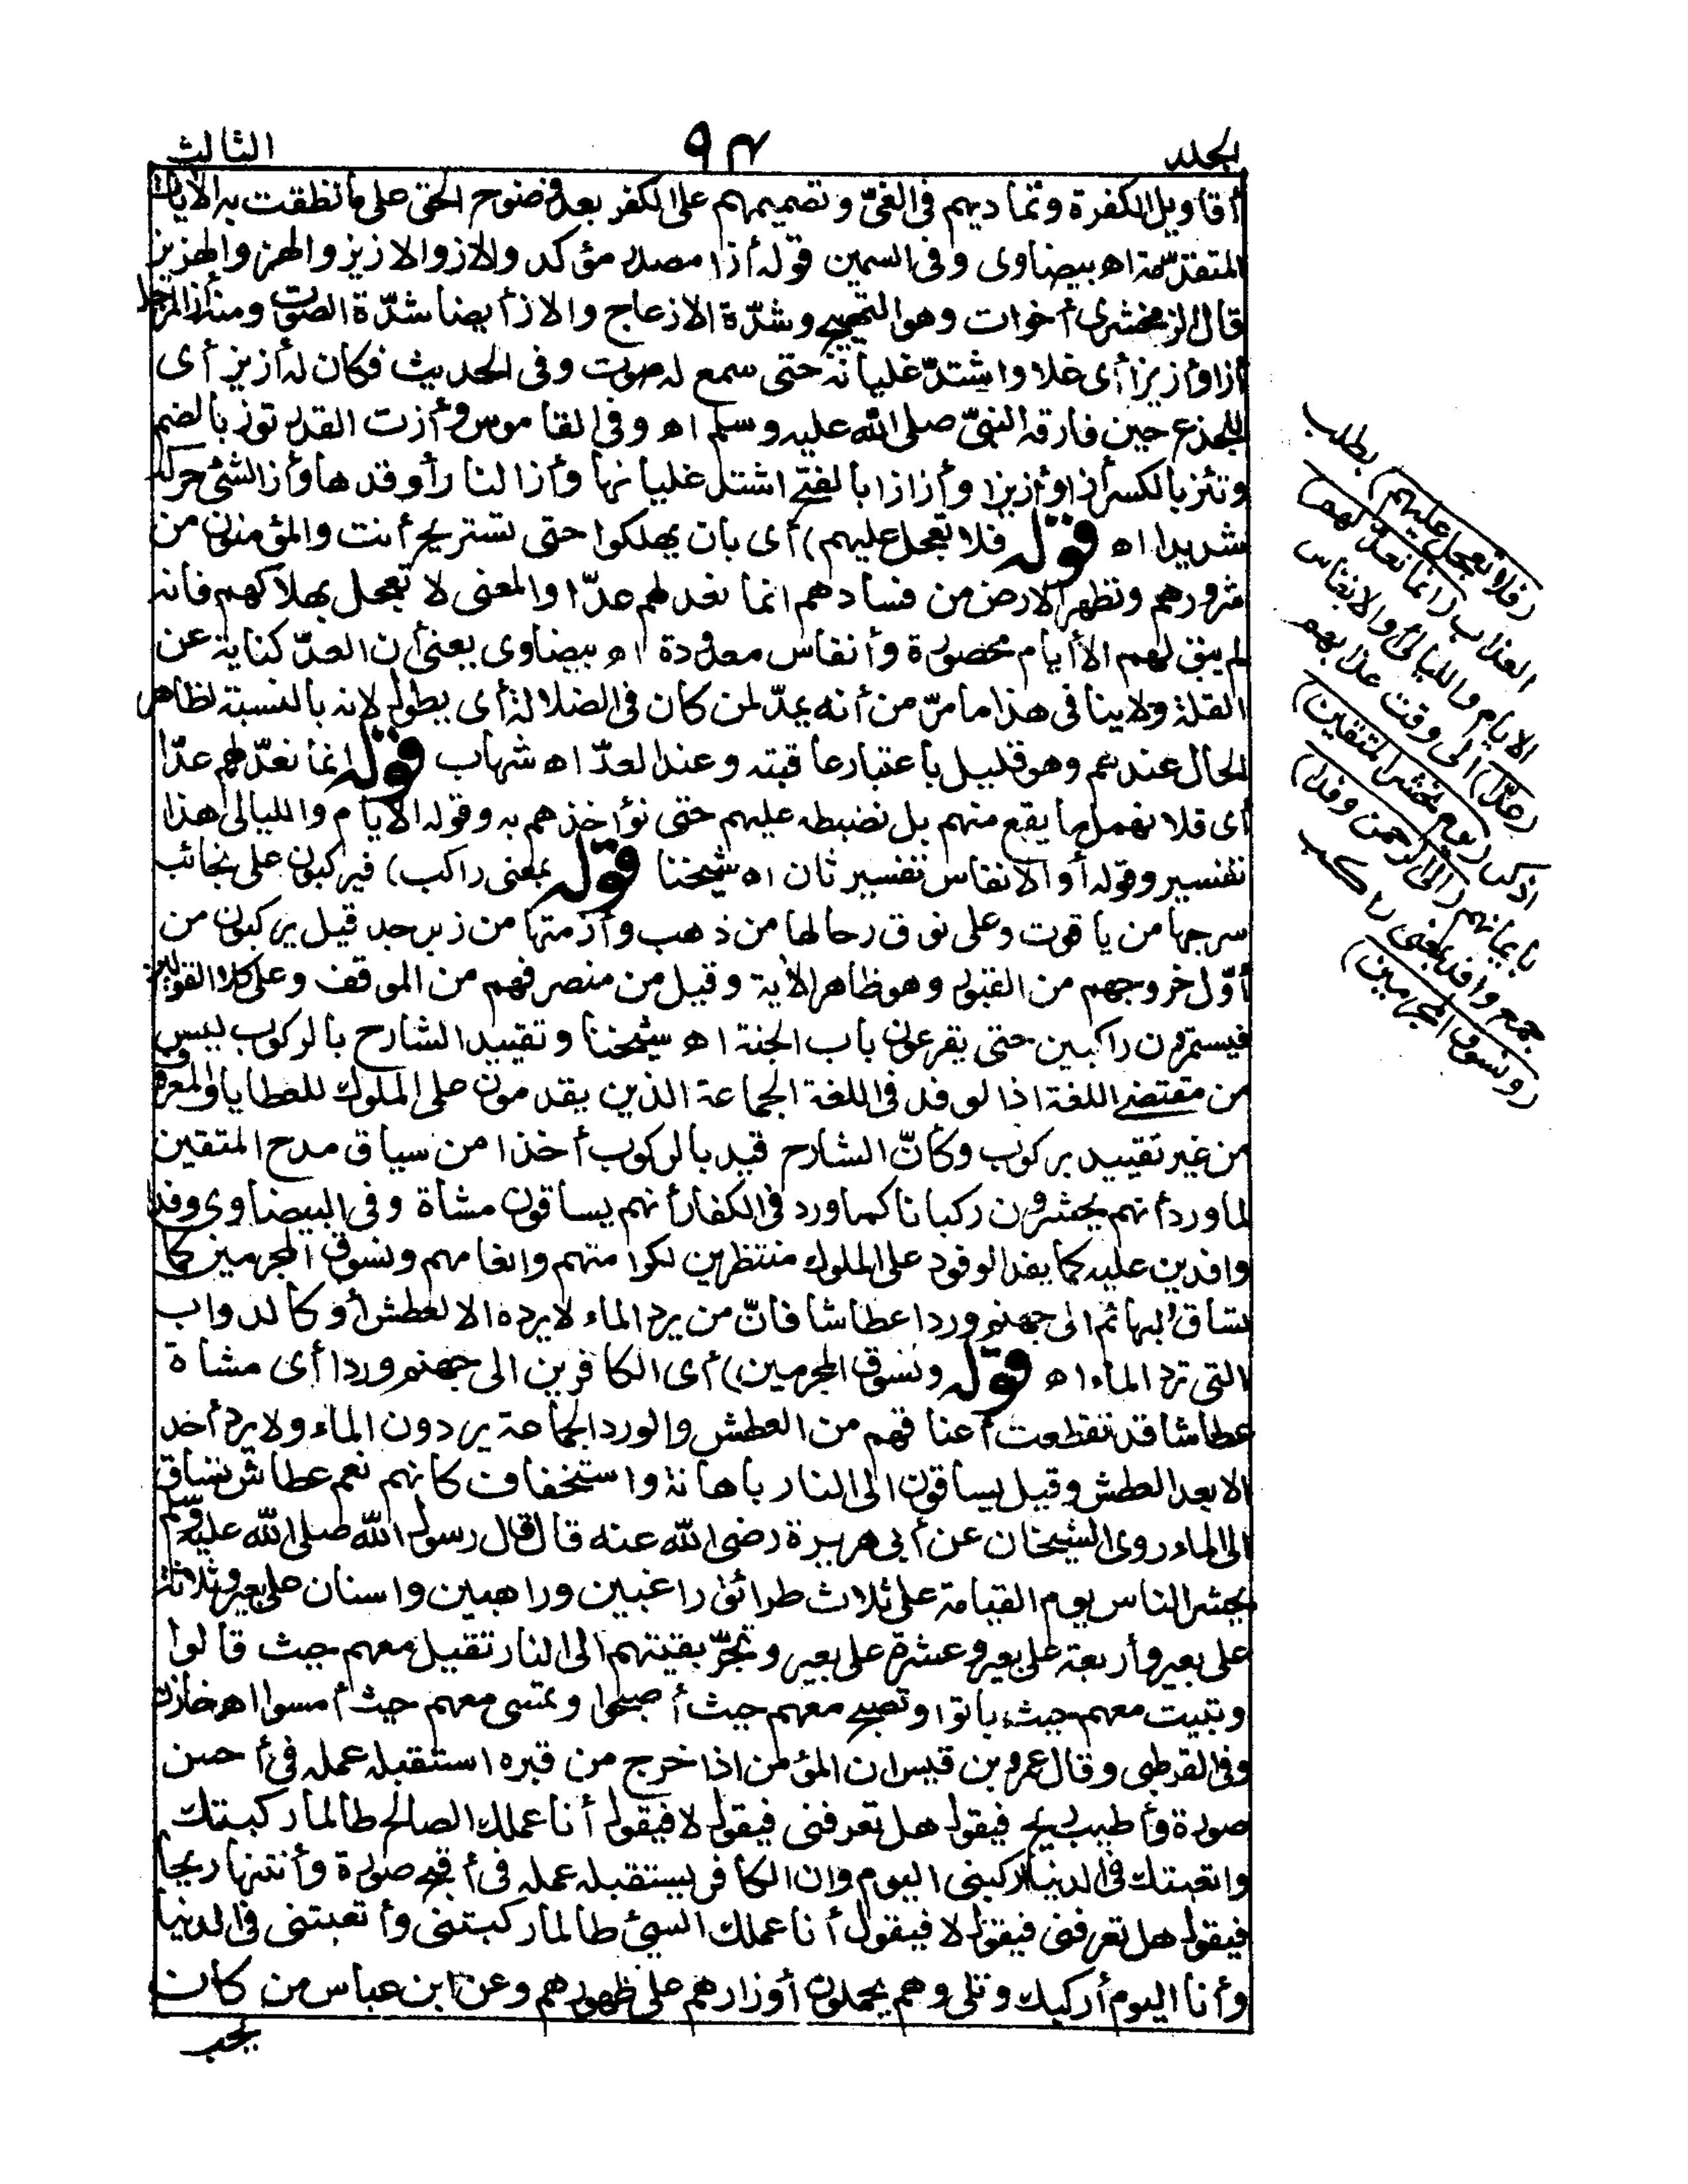 الجلد
٩٤
الثالث
أقاويل الكفرة وتماديهم فى الغىّ وتصميمهم على الكفر بعد وضوح الحق على ما نطقت به الآيات
المتقدّمة اه بيضاوى وفى السمين قوله أزا مصدر مؤكد والاز والازيز والهز والهزيز
قال الزمخشرى أخوات وهو التهييج وشدّة الازعاج والاز أيضا شدّة الصوت ومنه أز المرجل
أزا وأزيزا أى غلا واشتدّ غليانه حتى سمع له صوت وفى الحديث فكان له أزيز أى
للجذع حين فارقه النبىّ صلى الله عليه وسلم اه وفى القاموس وأزت القدر تؤز بالضم
وتئز بالكسر أزا وأزيزا وأزازا بالفتح اشتد غليانها وأز النار أوقدها وأز الشئ حركه
شديدا اه قوله فلا تعجل عليهم) أى بان يهلكوا حتى تستريح أنت والمؤمنون من
شرورهم وتطهر الارض من فسادهم انما نعد لهم عدّا والمعنى لا تعجل بهلاكهم فانه
لم يبق لهم الا أيام محصورة وأنفاس معدودة اه بيضاوى يعنى أن العدّ كناية عن
القلة ولا ينافى هذا ما مرّ من أنه يمدّ لمن كان فى الضلالة أى يطول لانه بالنسبة لظاهر
الحال عندهم وهو قليل باعتبار عاقبته وعند العدّ اه شهاب قوله انما نعدّ لهم عدّا
أى فلا نهمل ما يقع منهم بل نضبطه عليهم حتى نؤاخذهم به وقوله الايام والليالى هذا
تفسير وقوله أو الانفاس تفسير ثان اه شيخنا قوله بمعنى راكب) فيركبون على نجائب
سرجها من ياقوت وعلى نوق رحالها من ذهب وأزمتها من زبرجد قيل يركبون من
أوّل خروجهم من القبور وهو ظاهر الآية وقيل من منصرفهم من الموقف وعلى كلا القولين
فيستمرون راكبين حتى يقرعون باب الجنة اه شيخنا وتقييد الشارح بالركوب ليس
من مقتضى اللغة اذ الوفد فى اللغة الجماعة الذين يقدمون على الملوك للعطايا والمعروف
من غير تقييد بركوب وكأنّ الشارح قيد بالركوب أخذا من سياق مدح المتقين
لما ورد أنهم يحشرون ركبانا كما ورد فى الكفار أنهم يساقون مشاة وفى البيضاوى وفدا
وافدين عليه كما يفد الوفود على الملوك منتظرين لكرامتهم وانعامهم ونسوق المجرمين كما
تساق البهائم الى جهنم وردا عطاشا فانّ من يرد الماء لا يرده الا لعطش أو كالدواب
التى ترد الماء اه قوله ونسوق المجرمين) أى الكافرين الى جهنم وردا أى مشاة
عطاشا قد تقطعت أعناقهم من العطش والورد الجماعة يردون الماء ولا يرد أحد
الا بعد العطش وقيل يساقون الى النار باهانة واستخفاف كانهم نعم عطاش تساق
الى الماء روى الشيخان عن أبى هريرة رضى الله عنه قال قال رسول الله صلى الله عليه وسلم
يحشر الناس يوم القيامة على ثلاث طرائق راغبين وراهبين واسنان على بعير وثلاثة
على بعير وأربعة على بعير وعشرة على بعير وتجرّ بقيتهم الى النار تقيل معهم حيث قالوا
وتبيت معهم حيث باتوا وتصبح معهم حيث أصبحوا وتمسى معهم حيث أمسوا اه خازن
وفى القرطبى وقال عمرو بن قيس ان المؤمن اذا خرج من قبره استقبله عمله فى أحسن
صورة وأطيب ريح فيقول هل تعرفنى فيقول لا فيقول أنا عملك الصالح طالما ركبتك
واتعبتك فى الدنيا اركبنى اليوم وان الكافر يستقبله عمله فى أقبح صورة وأنتنها ريحا
فيقول هل تعرفنى فيقول لا فيقول أنا عملك السيئ طالما ركبتنى وأتعبتنى فى الدنيا
وأنا اليوم أركبك وتلى وهم يحملون أوزارهم على ظهورهم وعن ابن عباس من كان
يحب
(فلا تعجل عليهم) بطلب
العذاب (انما نعد لهم)
الايام والليالى أو الانفاس
(عدّا) الى وقت عذابهم
اذكر (يوم نحشر المتقين)
بايمانهم (الى الرحمن وفدا)
جمع وافد بمعنى راكب
(ونسوق المجرمين)